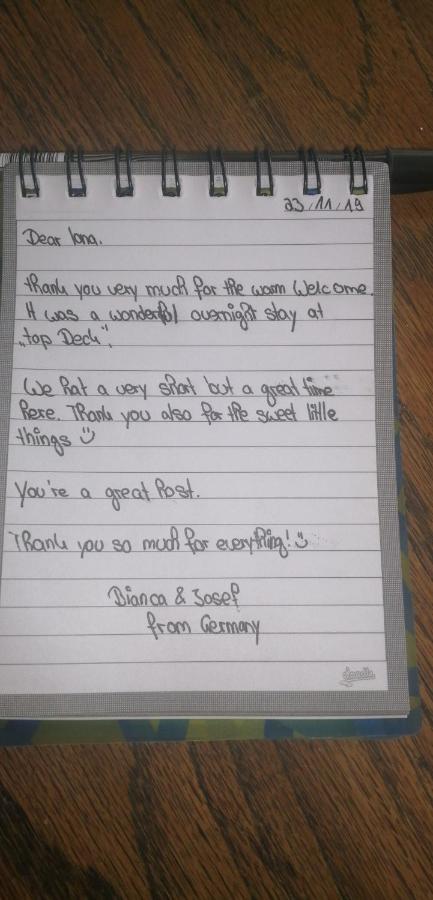 23/11/19
Dear Iona.
thank you very much for the warm Welcome.
It was a wonderful overnight stay at
„top Deck".
We hat a very short but a great time
here. Thank you also for the sweet little
things ☺
You're a great host.
Thank you so much for everything! ☺
Bianca & Josef
from Germany